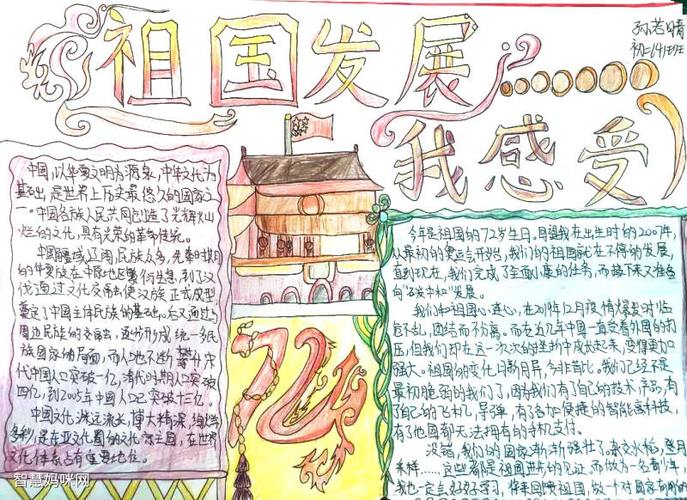 祖国发展
我感受
孙若晴
初二14班
中国,以华夏文明为源泉,中华文化为
基础,是世界上历史最悠久的国家之
一。中国各族人民共同创造了光辉灿
烂的文化,具有光荣的革命传统。
中国疆域辽阔,民族众多,先秦时期
的华夏族在中原地区繁衍生息,到了汉
代通过文化交流使汉族正式成型
奠定了中国主体民族的基础。后又通过与
周边民族的交流,逐步形成统一多民
族国家的局面,而人口也不断攀升
代中国人口突破一亿,清代时期人口突破
四亿,到2005年中国人口突破十三亿。
中国文化渊远流长,博大精深,绚烂
多彩,是东亚文化圈的文化宗主国,在世界
文化体系占有重要地位。
72
今年是祖国的72岁生日,回望我在出生时的2007年
从最初的奥运会开始,我们的祖国就在不停的发展,
直到现在,我们完成了全面小康的任务,而接下来又准备
向"碳中和"发展。
我们和祖国心连心,在2019年12月疫情爆发时临
危不乱,团结而不分离。而在近几年中国一直受着外国的打
压,但我们却在这一次次的挫折中成长起来,变得更加
强大。祖国的变化日新月异,今非昔比。我们已经不是
最初脆弱的我们了,因为我们有了自己的技术、产品,有
了自己的飞机、导弹,有了各加便捷的智能高科技,
有了他国都无法拥有的手机支付。
没错,我们的国家渐渐强壮了,杂交水稻,登月
采样……这些都是祖国进步的见证,而做为一名青少年,
我也一定会好好学习,将来回馈祖国,做一个对国家有用的
智慧妈咪网